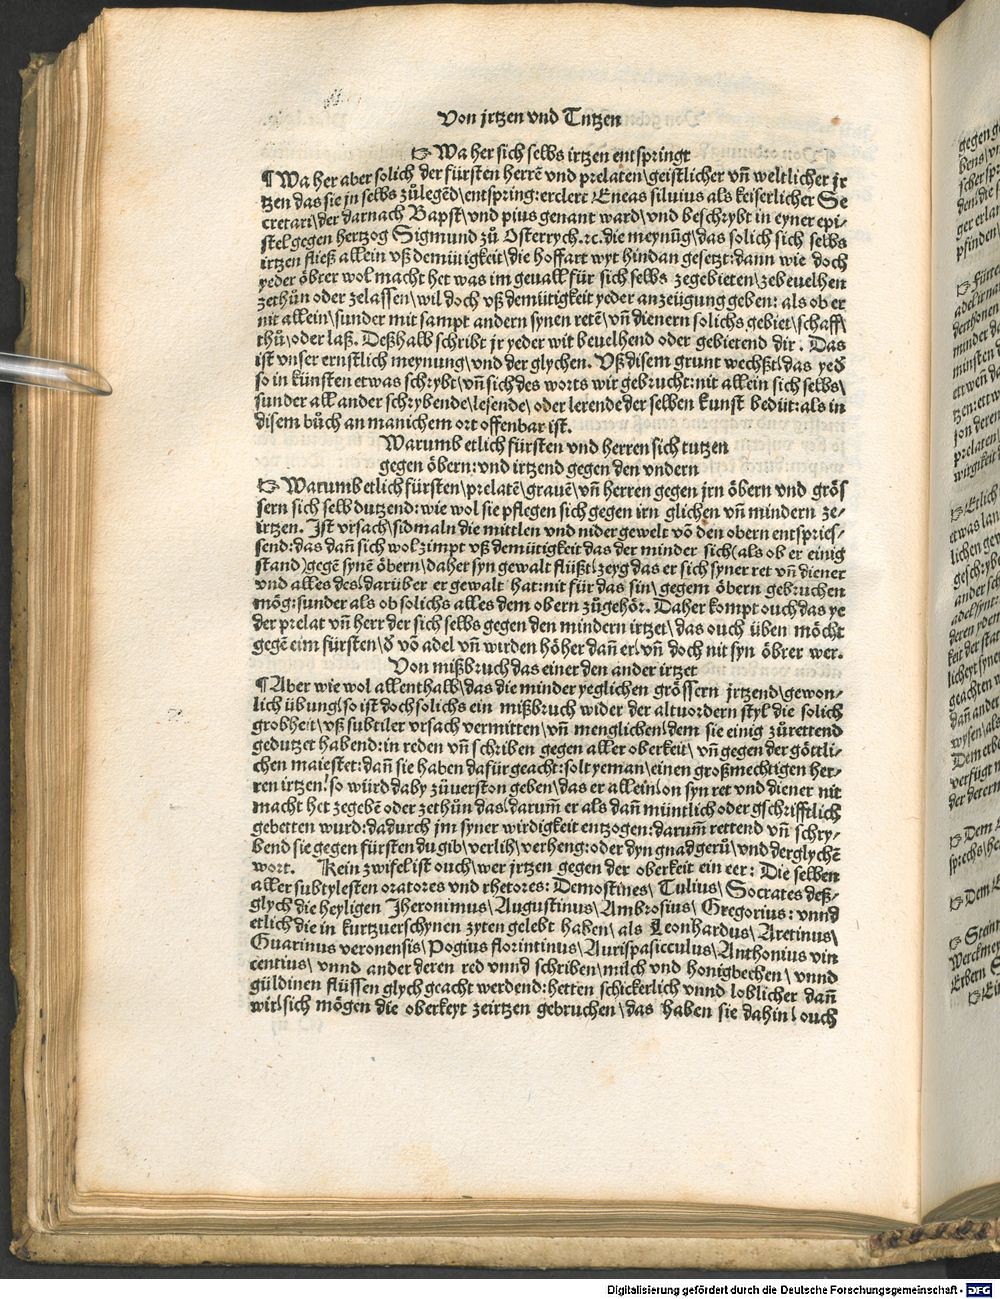 Von jrtzen vnd Tutzen
☞ Wa her sich selbs irtzen entspringt
¶ Wa her aber solich der fürsten herrē vnd prelaten\geistlicher vñ weltlicher jr
tzen das sie jn selbs zůlegēd\entspring:erclert Eneas siluius als keiserlicher Se
cretari\der darnach Bapst\vnd pius genant ward\vnd beschrybt in eyner epi-
stel gegen hertzog Sigmund zů Osterrych.ꝛc.die meynūg\das solich sich selbs
irtzen fließ allein vß demütigkeit\die hoffart wyt hindan gesetzt:dann wie doch
yeder öbrer wol macht het was im geuall für sich selbs zegebieten\zebeuelhen
zethůn oder zelassen\wil doch vß demütigkeit yeder anzeügung geben: als ob er
nit allein\sunder mit sampt andern synen retē\vñ dienern solichs gebiet\schaff\
thů\oder laß. Deßhalb schribt jr yeder wir beuelhend oder gebietend dir. Das
ist vnser ernstlich meynung\vnd der glychen. Vß disem grunt wechßt\das yeđ
so in künsten etwas schrybt\vñ sich des worts wir gebrucht:nit allein sich selbs\
sunder all ander schrybende\lesende\ oder lerende der selben kunst bedüt:als in
disem bůch an manichem ort offenbar ist.
Warumb etlich fürsten vnd herren sich tutzen
gegen öbern:vnd irtzend gegen den vndern
☞ Warumb etlich fürsten\prelatē\grauē\vñ herren gegen jrn öbern vnd grös
sern sich selb dutzend:wie wol sie pflegen sich gegen irn glichen vñ mindern ze-
irtzen. Ist vrsach\sidmaln die mittlen vnd nider gewelt vō den obern entspries-
send:das dañ sich wol zimpt vß demütigkeit das der minder sich(als ob er einig
stand)gegē synē öbern\daher syn gewalt flüßt\zeyg das er sich syner ret vñ diener
vnd alles des\darüber er gewalt hat:nit für das sin\gegem öbern gebruchen
mög:sunder als ob solichs alles dem obern zůgehör. Daher kompt ouch das ye
der prelat vñ herr der sich selbs gegen den mindern irtzet\das ouch üben möcht
gegē eim fürsten\đ vō adel vñ wirden höher dañ er\vñ doch nit syn öbrer wer.
Von mißbruch das einer den ander irtzet
¶ Aber wie wol allenthalb\das die minder yeglichen grössern jrtzend\gewon-
lich übung\so ist doch solichs ein mißbruch wider der altuordern styl\die solich
grobheit\vß subtiler vrsach vermitten\vñ menglichen\dem sie einig zůrettend
gedutzet habend:in reden vñ schriben gegen aller oberkeit\ vñ gegen der göttli-
chen maiestet:dañ sie haben dafür geacht:solt yeman\einen großmechtigen her-
ren irtzen\so würd daby zůuerston geben\das er allein\on syn ret vnd diener nit
macht het zegebē oder zethůn das\darum̄ er als dañ müntlich oder gschrifftlich
gebetten wurd:dadurch jm syner wirdigkeit entzogen:darum̄ rettend vñ schry-
bend sie gegen fürsten du gib\verlih\verheng:oder dyn gnad gerů\vnd derglychē
wort. Kein zwifel ist ouch\wer jrtzen gegen der oberkeit ein eer: Die selben
aller subtylesten oratores vnd rhetores: Demostines\ Tulius\ Socrates deß-
glych die heyligen Jheronimus\Augustinus\Ambrosius\ Gregorius: vnnd
etlich die in kurtzuerschynen zyten gelebt haben\als Leonhardus\Aretinus\
Guarinus veronensis\Pogius florintinus\Aurispasicculus\Anthonius vin
centius\ vnnd ander deren red vnnd schriben\milch vnd honigbechen\ vnnd
güldinen flüssen glych geacht werdend:hetten schickerlich vnnd loblicher dañ
wir\sich mögen die oberkeyt zeirtzen gebruchen\das haben sie dahin\ouch
Digitalisierung gefördert durch die Deutsche Forschungsgemeinschaft - DFG